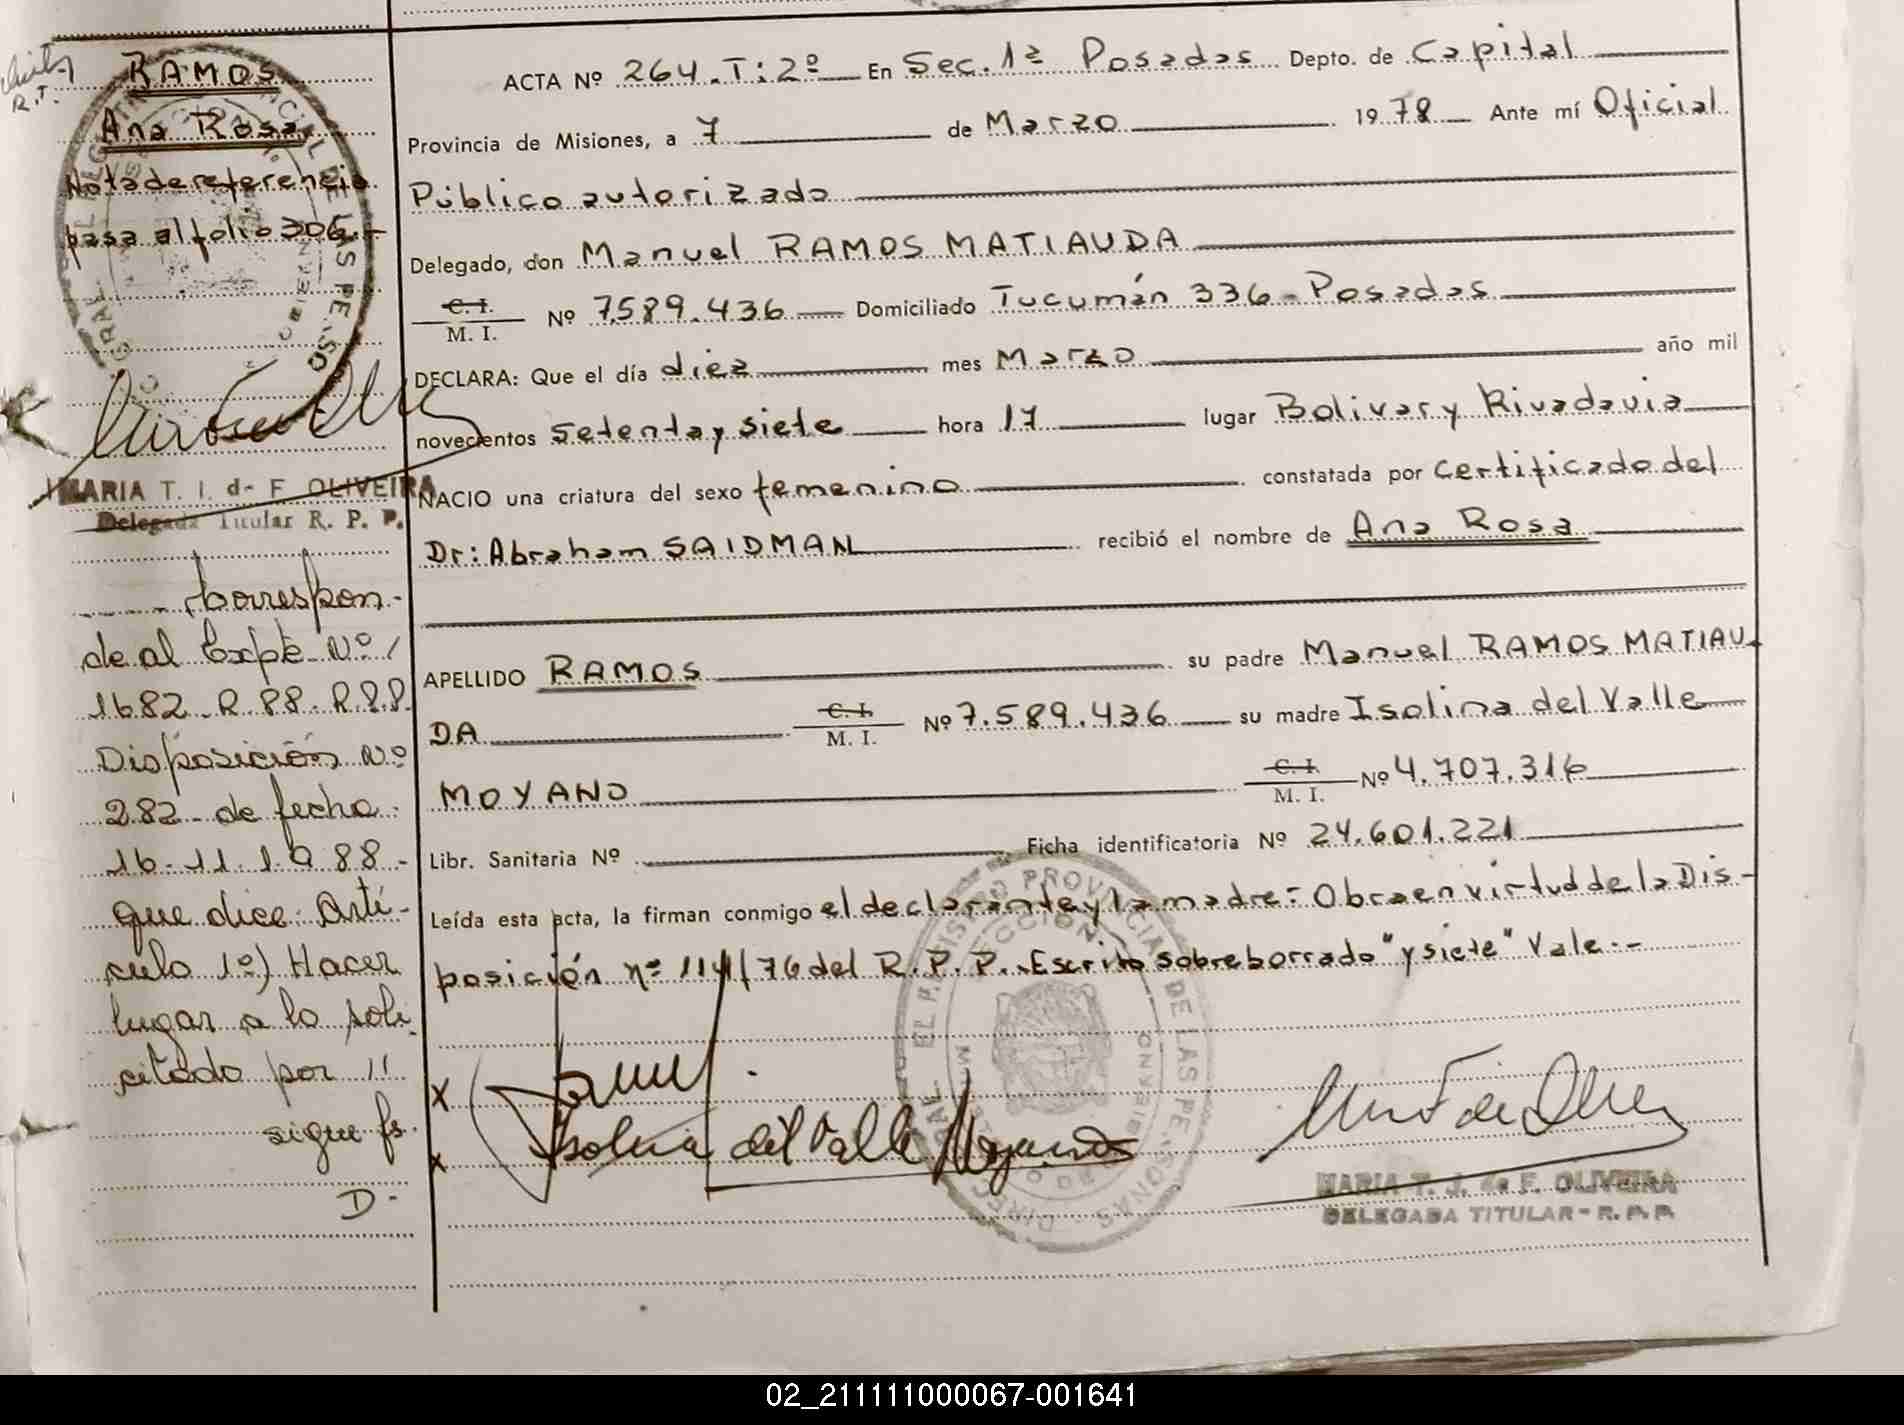 RAMOS
Ana Rosa
Nota de referencia
pasa al folio 306.-
MARIA T. J. de F. OLIVEIRA
Delegada Titular R. P. P.
Correspon-
de al Expte Nº
1682-R-88-R.P.P.
Disposición Nº
282- de fecha
16-11-1988-
que dice: Artí-
culo 1º) Hacer
lugar a lo soli
citado por //
sigue fs.
D-
ACTA Nº 264.T:2º En Sec. 1ª Posadas Depto. de Capital
Provincia de Misiones, a 7 de Marzo 1978 Ante mí Oficial
Público autorizado
Delegado, don Manuel RAMOS MATIAUDA
C. I.
M. I. Nº 7.589.436 Domiciliado Tucumán 336-Posadas
DECLARA: Que el día diez mes Marzo año mil
novecientos setenta y siete hora 17 lugar Bolivar y Rivadavia
NACIO una criatura del sexo femenino constatada por certificado del
Dr: Abraham SAIDMAN recibió el nombre de Ana Rosa
APELLIDO RAMOS su padre Manuel RAMOS MATIAU-
DA C. I. M. I. Nº 7.589.436 su madre Isolina del Valle
MOYANO C. I. M. I. Nº 4.707.316
Libr. Sanitaria Nº Ficha identificatoria Nº 24.601.221
Leída esta acta, la firman conmigo el declarante y la madre:- Obra en virtud de la Dis-
posición nº 114/76 del R.P.P. Escrito sobre borrado "y siete" Vale.-
X
X Isolina del Valle Moyano
REGISTRO PROVINCIAL DE LAS PERSONAS
MARIA T. J. de F. OLIVEIRA
DELEGADA TITULAR - R. P. P.
02_211111000067-001641